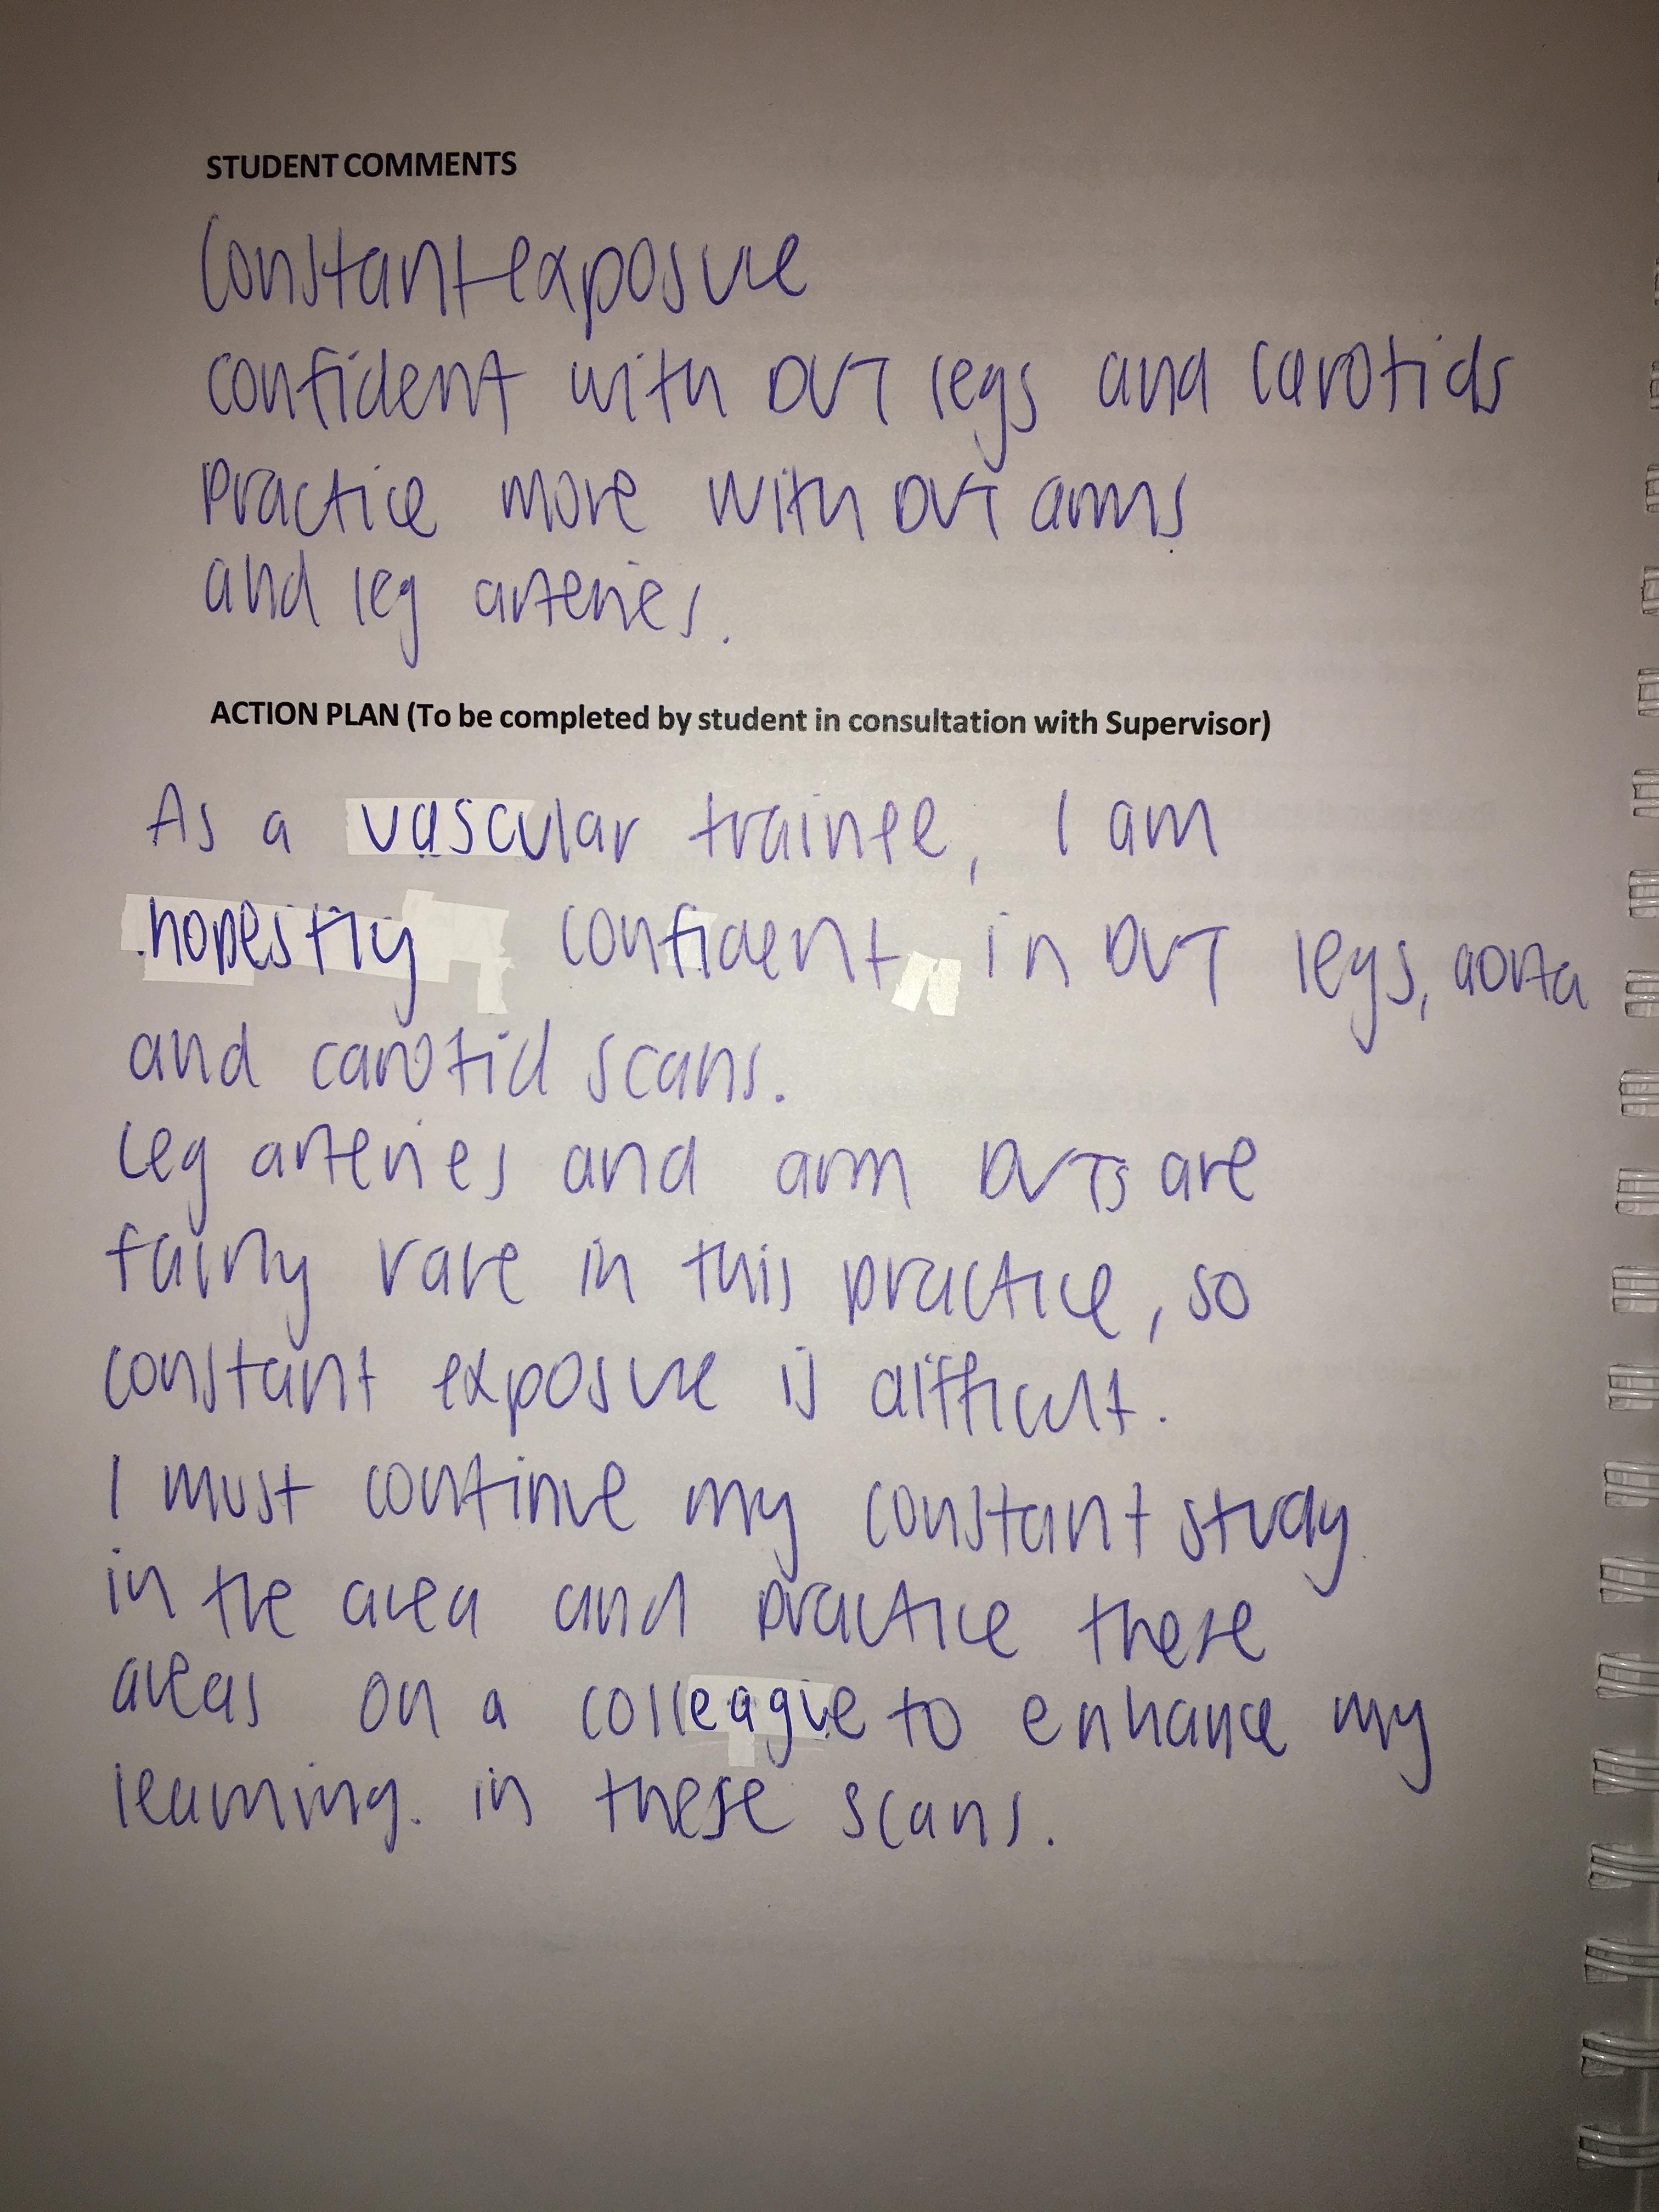 STUDENT COMMENTS
Constant exposure
confident with DVT legs and carotids
Practice more with DVT arms
and leg arteries.
ACTION PLAN (To be completed by student in consultation with Supervisor)
As a vascular trainee, I am
honestly confident in DVT legs, aorta
and carotid scans.
Leg arteries and arm DVTs are
fairly rare in this practice, so
constant exposure is difficult.
I must continue my constant study
in the area and practice these
areas on a colleague to enhance my
learning. in these scans.